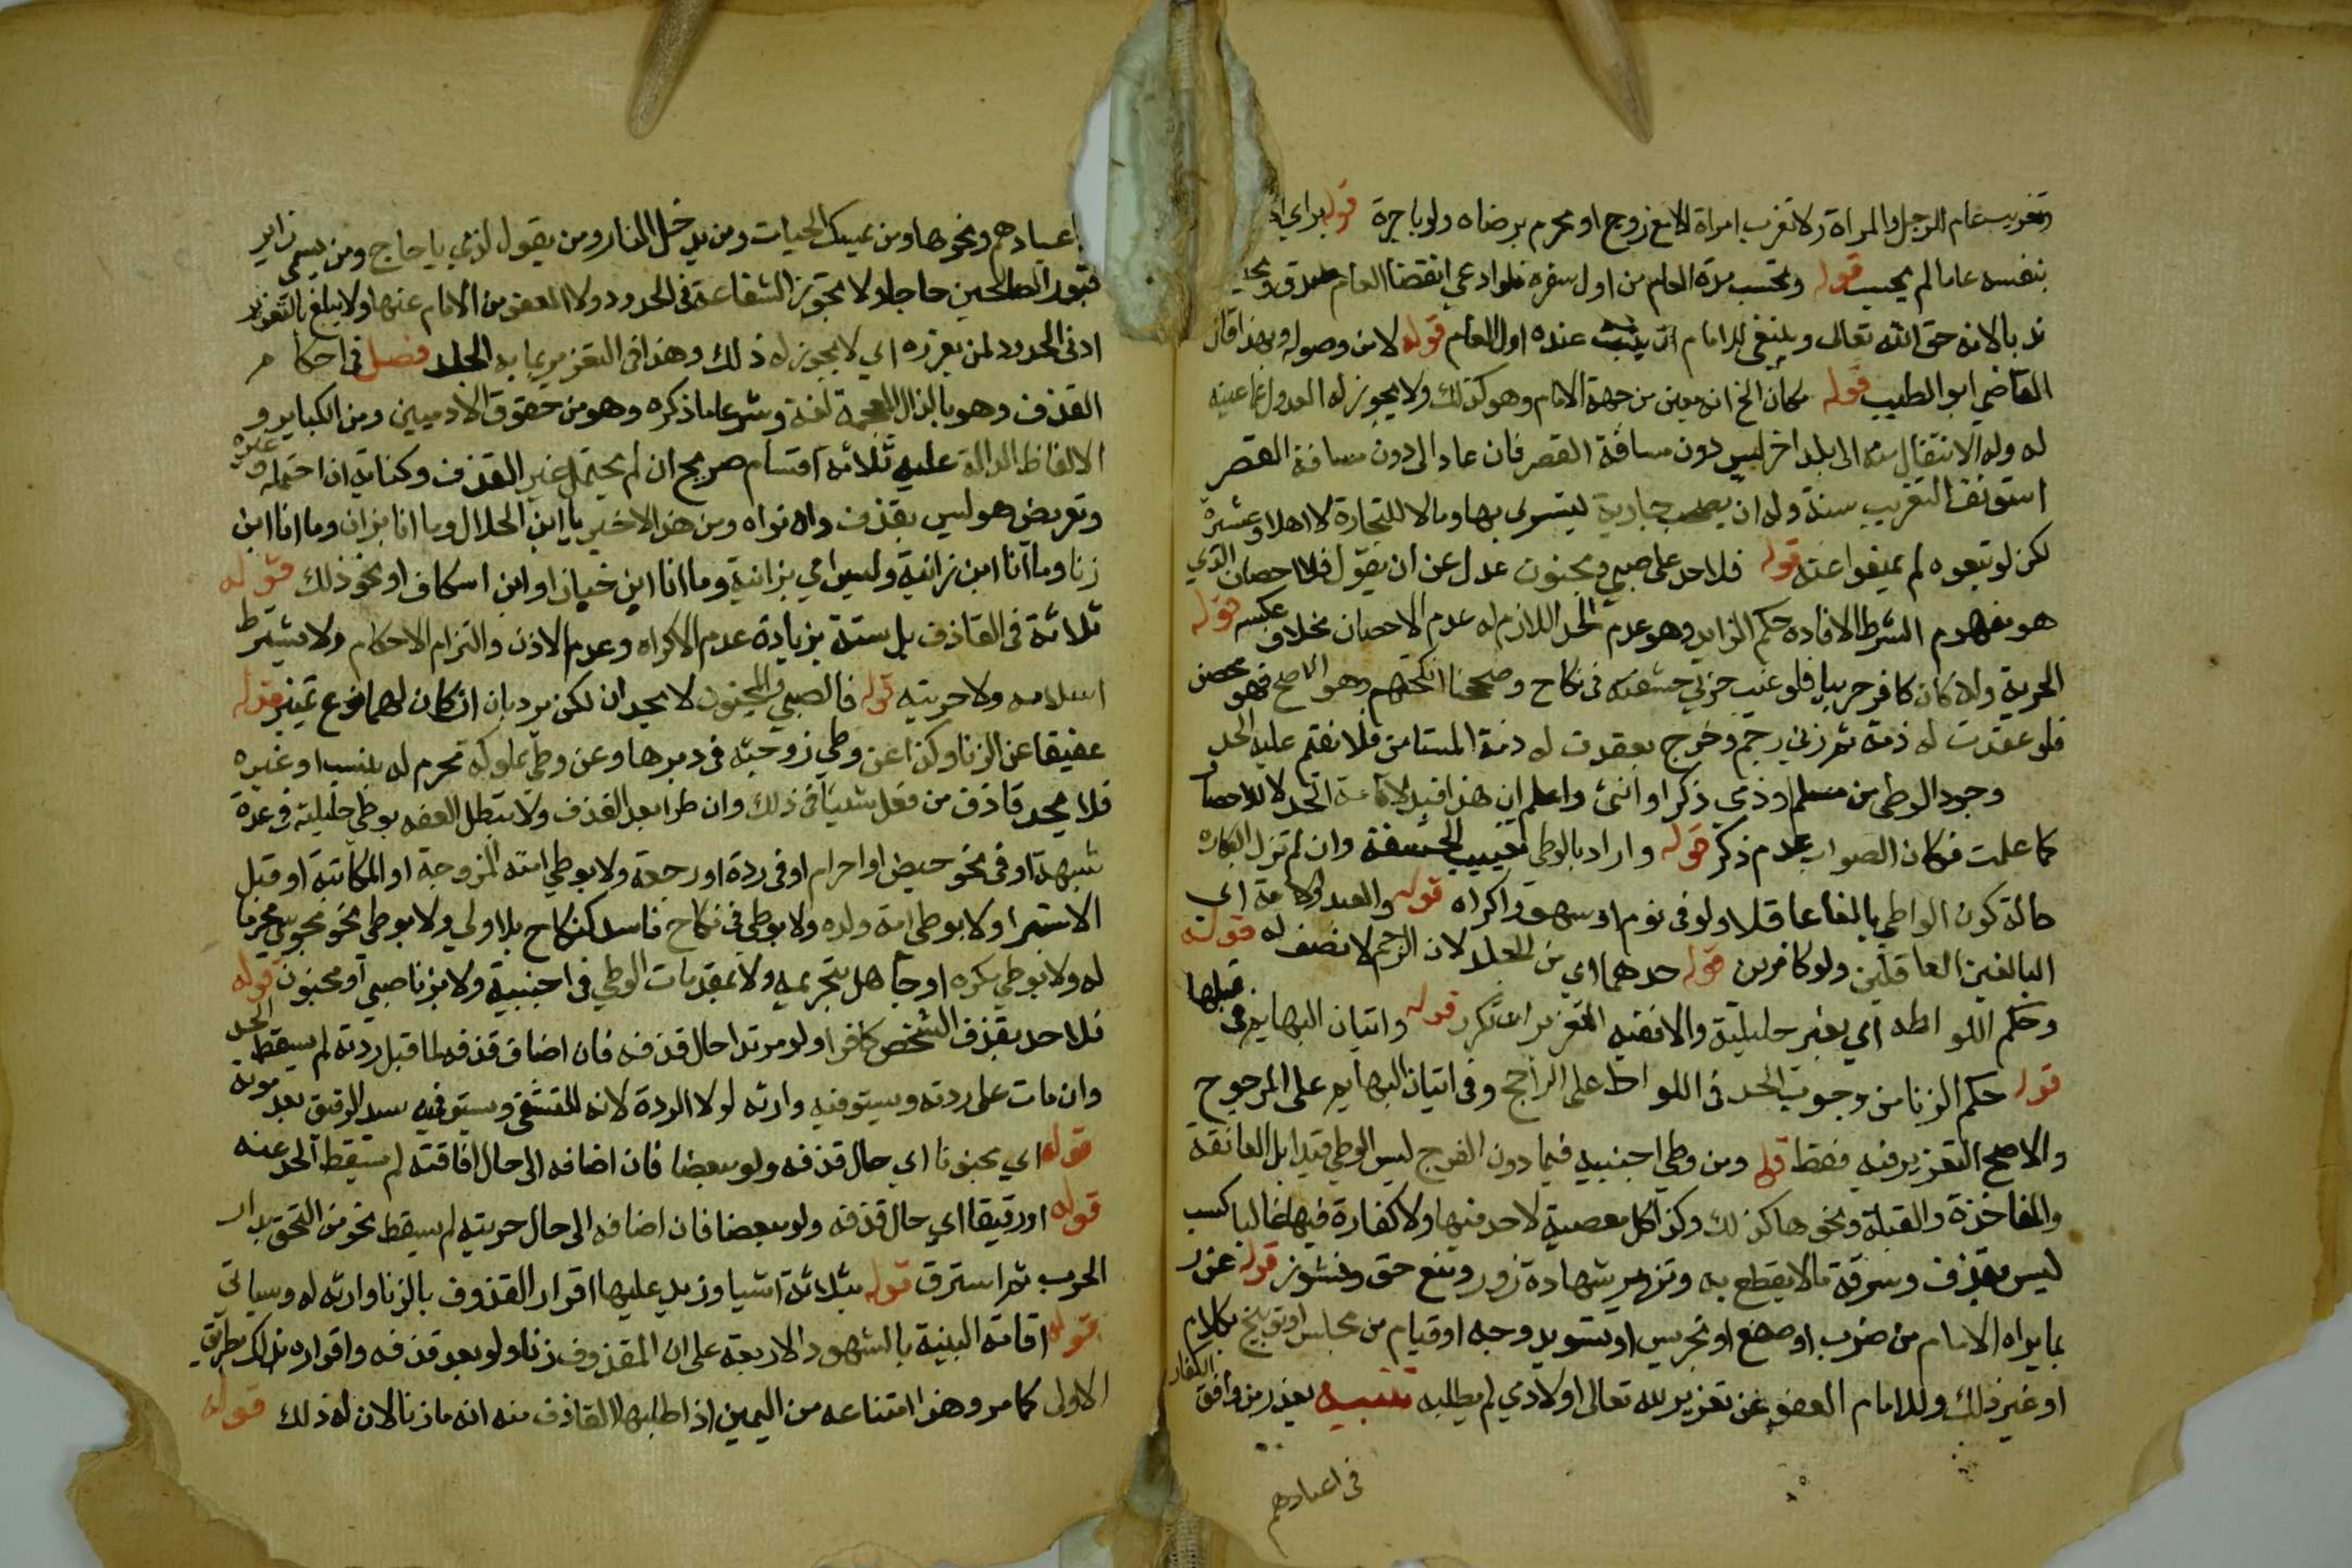 وتغريب عام الرجل والمراة ولا تغرب امراة الا مع زوج او محرم برضاه ولو باجرة قوله براي
بنفسه عاما لم يحسب قوله وتحسب مدة العام من اول سفره فلو ادعى انقضا العام صدق
ندبا لانه حق الله تعالى وينبغي للامام ان يثبت عنده اول العام قوله لا من وصوله وبهذا قال
القاضي ابو الطيب قوله مكان الخ انه معين من جهة الامام وهو كذلك ولا يجوز له العدول عما عينه
له وله الانتقال منه الى بلد اخر ليس دون مسافة القصر فان عاد الى دون مسافة القصر
استونف التغريب سنة وله ان يصحب جارية ليتسرى بها ومالا للتجارة لا اهلا وعشيرة
لكن لو تبعوه لم يمنعوا عنه قوله فلا حد على صبي ومجنون عدل عن ان يقول فلا احصان الذي
هو مفهوم الشرط لافادة حكم الزايد وهو عدم الحد اللازم له عدم الاحصان بخلاف عكسه قوله
الحرية وان كان كافر حربيا فلو غيب حربي حشفته في نكاح وصححنا انكحتهم وهو الاصح فهو محصن
فلو عقدت له ذمة ثم زنى رجم وخرج بعقدت له ذمة المستامن فلا نقيم عليه الحد
وجود الوطي من مسلم او ذمي ذكر او انثى واعلم ان هذا قيد لاقامة الحد لا للاحصان
كما علمت فكان الصواب عدم ذكره قوله واراد بالوطي تغييب الحشفة وان لم تزل البكارة
حالة كون الواطي بالغا عاقلا ولو في نوم او سهو واكراه قوله والعبد والامة اي
البالغين العاقلين ولو كافرين قوله حدهما اي من الجلد لان الرجم لا نصف له قوله
وحكم اللواطه اي بغير حليلته والا ففيه التعزير ان تكرر قوله واتيان البهايم في قبلها
قوله حكم الزنا من وجوب الحد في اللواط على الراجح وفي اتيان البهايم على المرجوح
والاصح التعزير فيه فقط قوله ومن وطي اجنبيه فيما دون الفرج ليس الوطي قيدا بل المعانقة
والمفاخذة والقبلة ونحوها كذلك وكذا كل معصية لا حد فيها ولا كفارة فيها غالبا كسب
ليس بقذف وسرقة ما لا يقطع به وتزوير شهادة زور ومنع حق ونشوز قوله عزر
بما يراه الامام من ضرب او صفع او تجريس او تسويد وجه او قيام من مجلس او توبيخ بكلام
او غير ذلك وللامام العفو عن تعزير لله تعالى او لادمي لم يطلبه تنبيه يعزر من وافق الكفار
في اعيادهم
اعيادهم ونحوها ومن يمسك الحيات ومن يدخل النار ومن يقول لذمي يا حاج ومن يسمي زاير
قبور الصالحين حاجا ولا تجوز الشفاعة في الحدود ولا العفو من الامام عنها ولا يبلغ بالتعزير
ادنى الحدود لمن يعزره اي لا يجوز له ذلك وهذا في التعزير بما به الجلد فصل في احكام
القذف وهو بالذال المعجمة لغة وشرعا ما ذكره وهو من حقوق الادميين ومن الكباير و
الالفاظ الدالة عليه ثلاثة اقسام صريح ان لم يحتمل غير القذف وكناية ان احتمله وغيره
وتعريض هو ليس بقذف وان نواه ومن هذا الاخير يا ابن الحلال وما انا بزان وما انا ابن
زنا وما انا ابن زانية وليس امي بزانية وما انا ابن خباز او ابن اسكاف او نحو ذلك قوله
ثلاثة في القاذف بل ستة بزيادة عدم الاكراه وعدم الاذن والتزام الاحكام ولا يشترط
اسلامه ولا حريته قوله فالصبي والمجنون لا يحدان لكن يردبان ان كان لهما نوع تمييز قوله
عفيفا عن الزنا وكذا عن وطي زوجته في دبرها وعن وطي مملوكة محرم له بنسب او غيره
فلا يحد قاذف من فعل شيئا في ذلك وان طرا بعد القذف ولا تبطل العفه بوطي حليلته في عدة
شبهة او في نحو حيض او احرام او في ردة او رجعة ولا بوطي امته المزوجة او المكاتبة او قبل
الاستبرا ولا بوطي امة ولده ولا بوطي في نكاح فاسد كنكاح بلا ولي ولا بوطي نحو مجوسي محرما
له ولا بوطي مكره او جاهل بتحريمه ولا بمقدمات الوطي في اجنبية ولا بزنا صبي او مجنون قوله
فلا حد بقذف الشخص كافرا ولو مرتدا حال قذفه فان اضاف قذفه لما قبل ردته لم يسقط الحد
وان مات على ردته ويستوفيه وارثه لولا الردة لانه للتشفي ويستوفيه سيد الرقيق بعد موته
قوله اي مجنونا اي حال قذفه ولو بعضا فان اضافه الى حال افاقته لم يسقط الحد عنه
قوله او رقيقا اي حال قذفه ولو مبعضا فان اضافه الى حال حريته لم يسقط نحو من التحق بدار
الحرب ثم استرق قوله بثلاثة اشيا وزيد عليها اقرار المقذوف بالزنا وارثه له وسياتي
قوله اقامة البينة بالشهود الاربعة على ان المقذوف زنا ولو بعد قذفه واقراره بذلك بطريق
الاولى كما مر وهذا امتناعه من اليمين اذا طلبها القاذف منه انه ما زنا لان له ذلك قوله